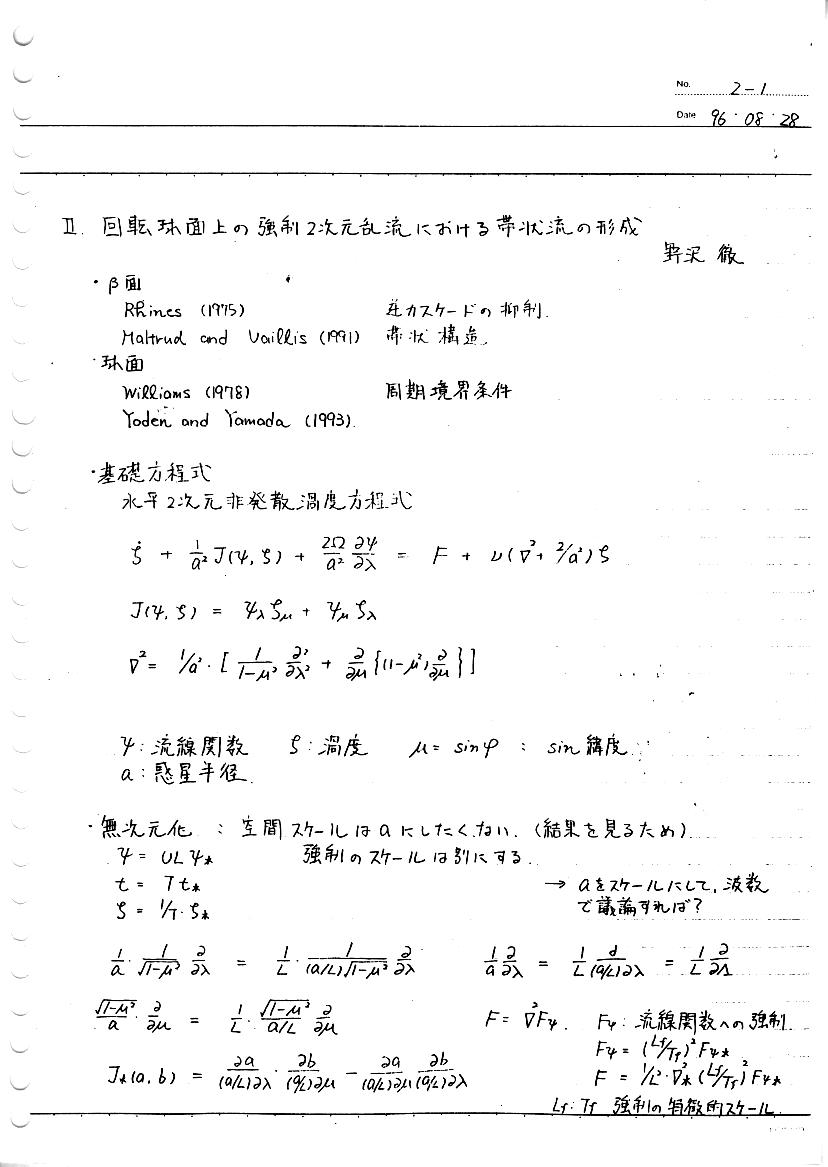 No. 2-1
Date 96・08・28
II. 回転球面上の強制2次元乱流における帯状流の形成
野沢 徹
・β面
Rhines (1975) 逆カスケードの抑制.
Maltrud and Vallis (1991) 帯状構造.
・球面
Williams (1978) 周期境界条件
Yoden and Yamada (1993).
・基礎方程式
水平2次元非発散渦度方程式
ζ̇ + 1/a² J(ψ, ζ) + 2Ω/a² ∂ψ/∂λ = F + ν(∇² + 2/a²)ζ
J(ψ, ζ) = ψ_λ ζ_μ + ψ_μ ζ_λ
∇² = 1/a²・[ 1/(1-μ²) ∂²/∂λ² + ∂/∂μ {(1-μ²) ∂/∂μ} ]
ψ : 流線関数 ζ : 渦度 μ = sinφ : sin 緯度.
a : 惑星半径.
・無次元化 : 空間スケールは a にしたくない. (結果を見るため)
ψ = UL ψ* 強制のスケールは別にする.
t = T t* → aをスケールにして, 波数
ζ = 1/T・ζ* で議論すれば?
1/a・1/√(1-μ²) ∂/∂λ = 1/L・1/((a/L)√(1-μ²)) ∂/∂λ 1/a ∂/∂λ = 1/L ∂/((a/L)∂λ) = 1/L ∂/∂Λ
√(1-μ²)/a・∂/∂μ = 1/L・√(1-μ²)/(a/L) ∂/∂μ F = ∇²Fψ. Fψ : 流線関数への強制.
Fψ = (Lf/Tf)² Fψ*
J*(a, b) = ∂a/((a/L)∂λ)・∂b/((a/L)∂μ) - ∂a/((a/L)∂μ) ∂b/((a/L)∂λ) F = 1/L²・∇*² (Lf/Tf)² Fψ*
Lf : Tf 強制の特徴的スケール.